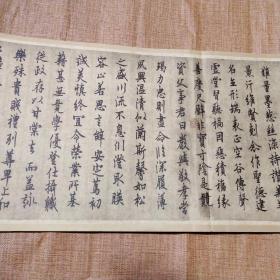 量墨悲絲染詩讚羔羊
景行維賢剋念作聖德建
名立形端表正空谷傳聲
虛堂習聽禍因惡積福緣
善慶尺璧非寶寸陰是競
資父事君曰嚴與敬孝當
竭力忠則盡命臨深履薄
夙興溫清似蘭斯馨如松
之盛川流不息淵澄取暎
容止若思言辭安定篤初
誠美慎終宜令榮業所基
藉甚無竟學優登仕攝職
從政存以甘棠去而益詠
樂殊貴賤禮別尊卑上和